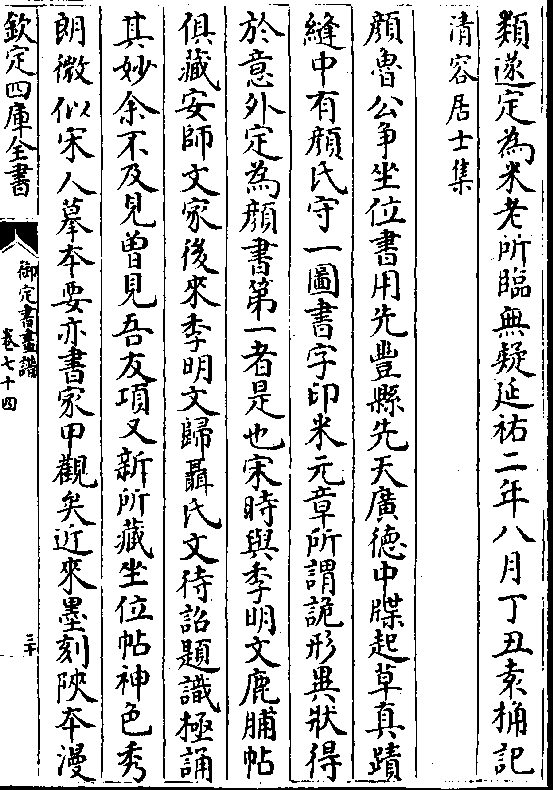 類遂定為米老所臨無疑延祐二年八月丁丑袁桷記
清容居士集
顔魯公争坐位書用先豐縣先天廣德中牒起草真蹟
縫中有顔氏守一圖書字印米元章所謂詭形異狀得
於意外定為顔書第一者是也宋時與季明文鹿脯帖
俱藏安師文家後來季明文歸聶氏文待詔題識極誦
其妙余不及見曽見吾友項又新所藏坐位帖神色秀
朗微似宋人摹本要亦書家甲觀矣近來墨刻陜本漫
欽定四庫全書
御定書畫譜
卷七十四
三十